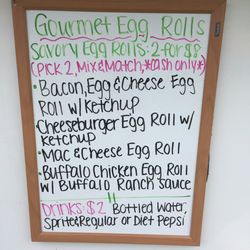 Gourmet Egg Rolls
Savory Egg Rolls: 2 for $8
(Pick 2, Mix & Match, *Cash only*)
• Bacon, Egg & Cheese Egg
Roll w/ Ketchup
• Cheeseburger Egg Roll w/
Ketchup
• Mac & Cheese Egg Roll
• Buffalo Chicken Egg Roll
w/ Buffalo Ranch Sauce
Drinks: $2 Bottled Water,
Sprite & Regular or Diet Pepsi